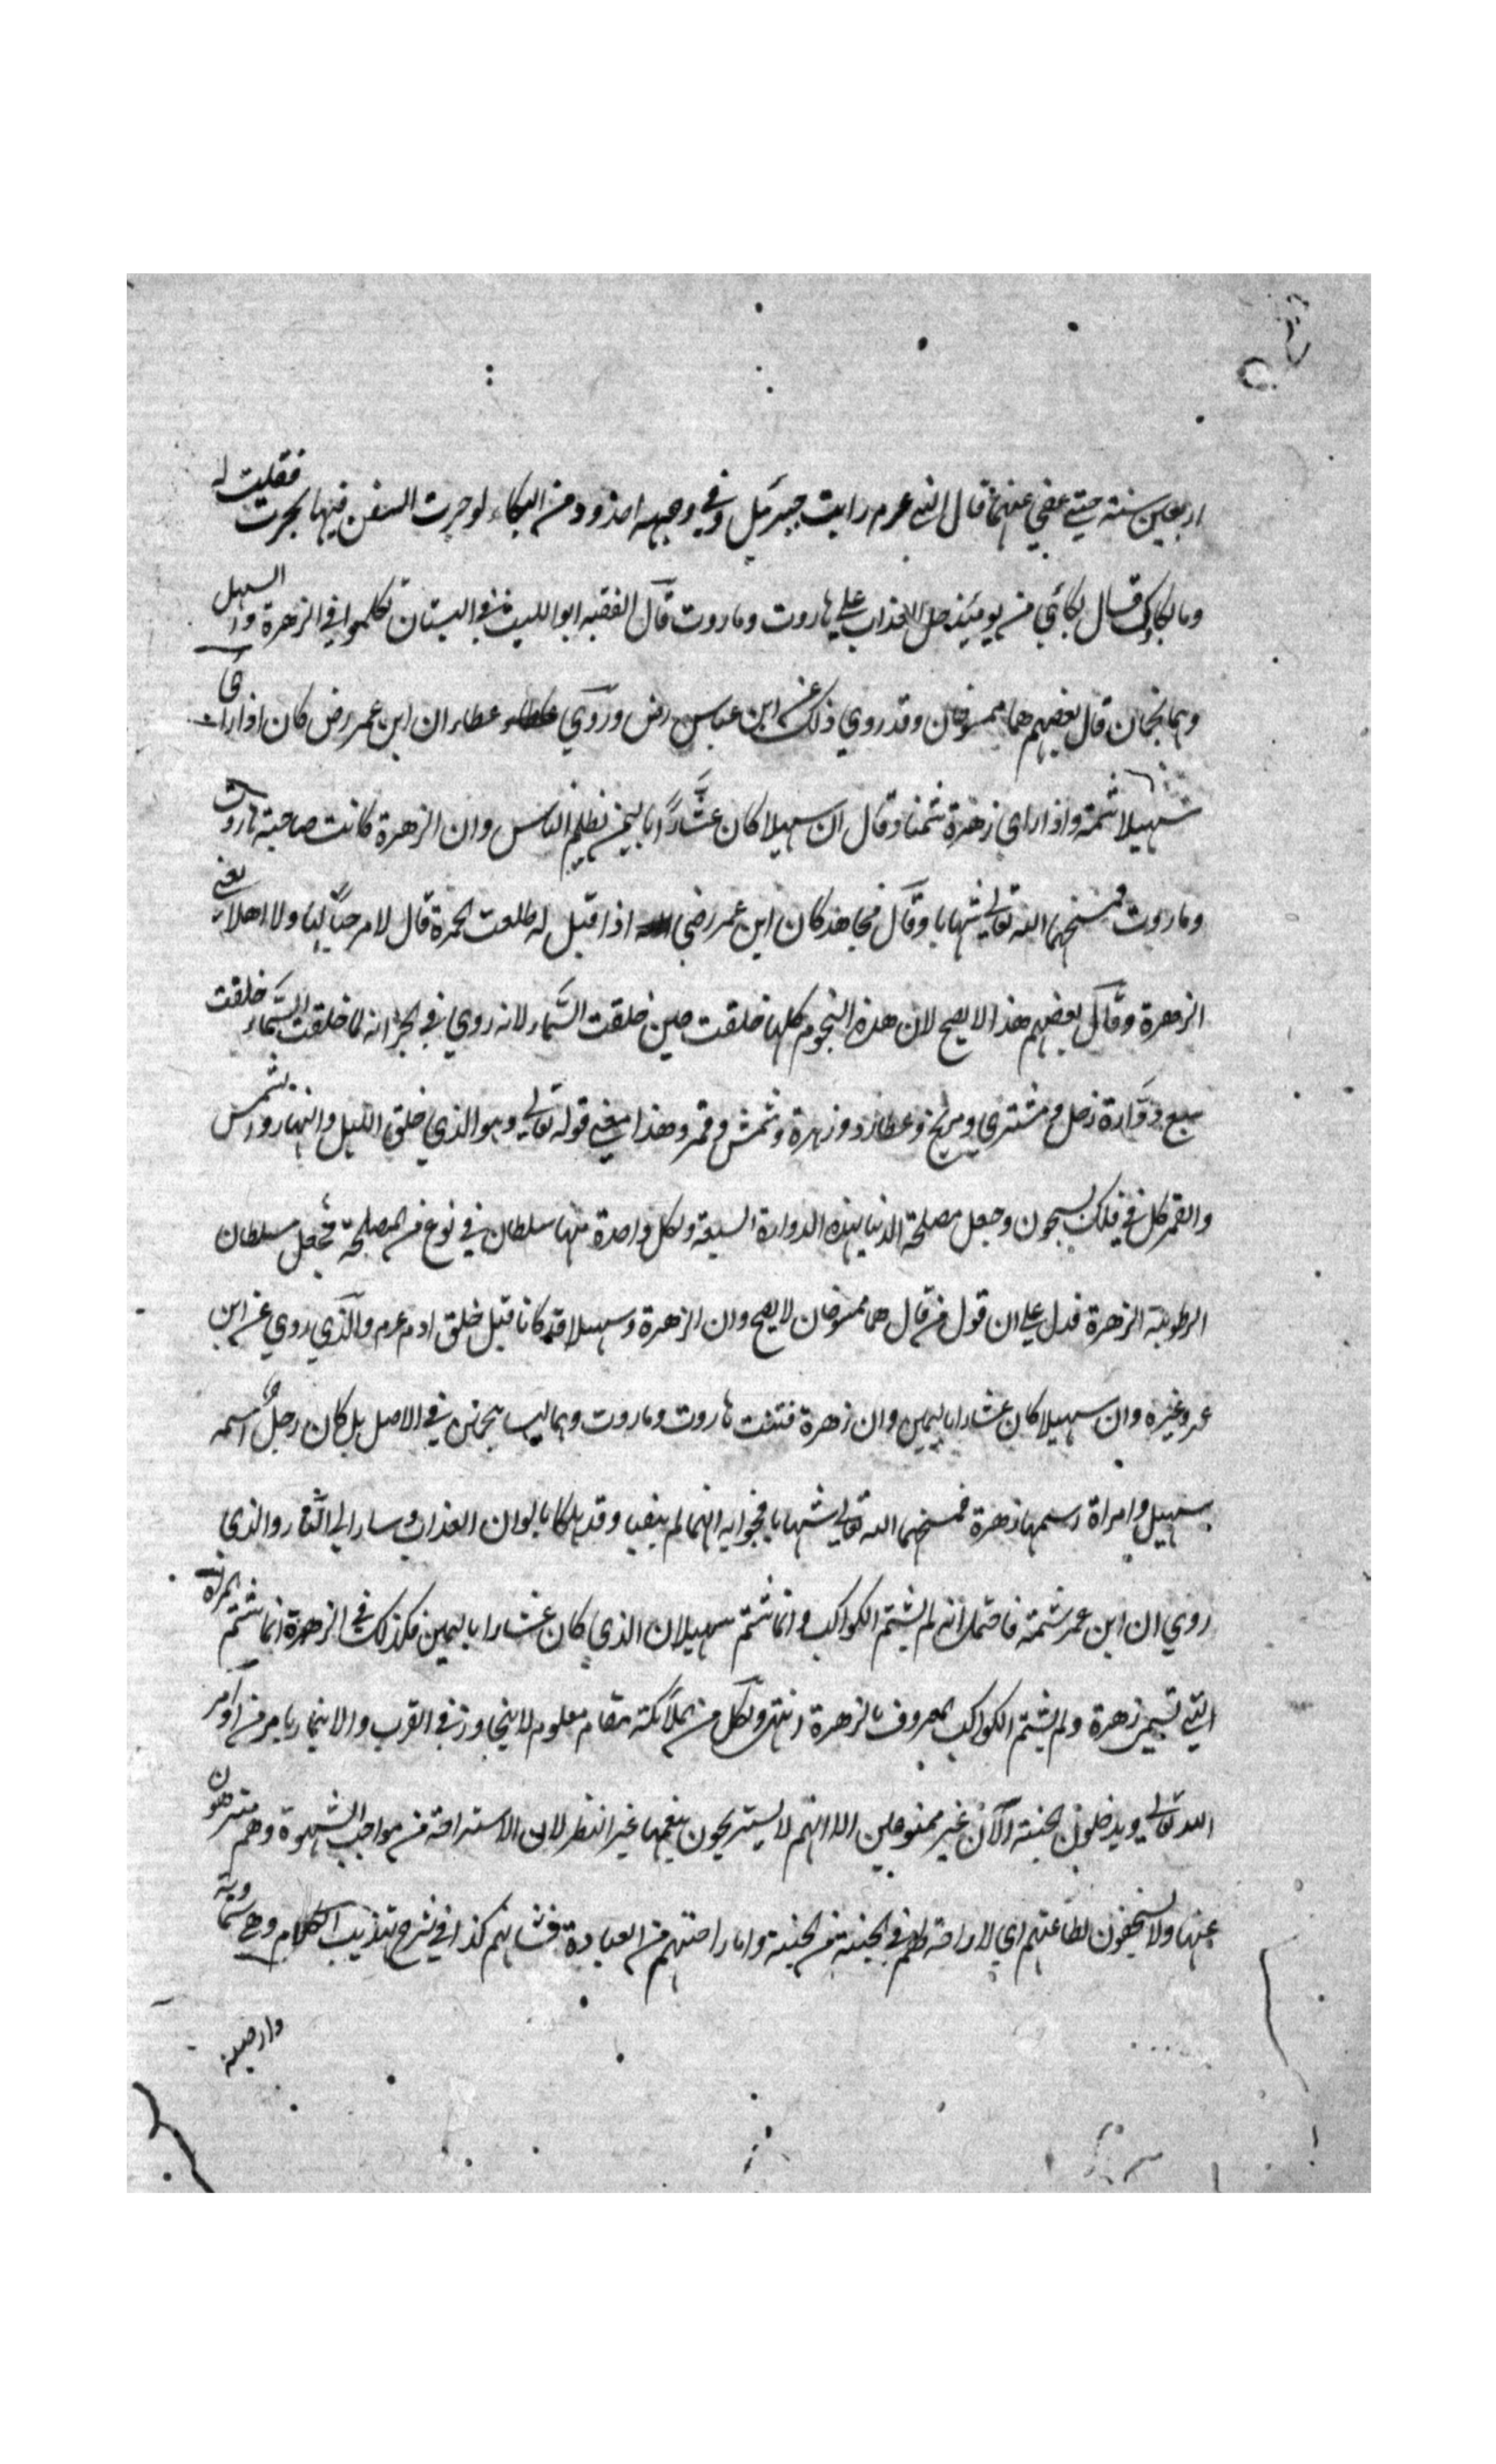 اربعين سنة حتى عفي عنهما قال النبي عرم رايت جبرئيل وفي وجهه اخدود من البكاء لو جرت السفن فيها لجرت فقلت له
وما بكاؤك قال بكائي من يومئذ حل العذاب علي هاروت وماروت قال الفقيه ابو الليث في البستان تكلموا في الزهرة والسهيل
وهما نجمان قال بعضهم هما ممسوخان وقد روي ذلك عن ابن عباس رض وروي عطاء ان ابن عمر رض كان اذا راي
سهيلا شتمه واذا راي زهرة شتمها وقال ان سهيلا كان عشارا باليمن يظلم الناس وان الزهرة كانت صاحبة هاروت
وماروت فمسخهما الله تعالى شهابا وقال مجاهد كان ابن عمر رضي اذا قيل له طلعت الحمرة قال لا مرحبا لها ولا اهلا يعني
الزهرة وقال بعضهم هذا لا يصح لان هذه النجوم كلها خلقت حين خلقت السماء لانه روي في الخبر انه لما خلقت السماء خلقت
سبع دوارة زحل ومشتري ومريخ وعطارد وزهرة وشمس وقمر وهذا معنى قوله تعالى وهو الذي خلق الليل والنهار والشمس
والقمر كل في فلك يسبحون وجعل مصلحة الدنيا بهذه الدوارة السبعة ولكل واحدة منها سلطان في نوع من المصلحة فجعل سلطان
الرطوبة الزهرة فدل علي ان قول من قال هما ممسوخان لا يصح وان الزهرة وسهيلا قد كانا قبل خلق ادم عرم والذي روي عن ابن
عمر وغيره وان سهيلا كان عشارا باليمين وان زهرة فتنت هاروت وماروت وهما ليسا بنجمين في الاصل بل كان رجل اسمه
سهيل وامراة اسمها زهرة فمسخهما الله تعالى شهابا فجوابه انهما لم يبقيا وقد هلكا بالوان العذاب وسارا الي النار والذي
روي ان ابن عمر شتمه فاحتمل انه لم يشتم الكواكب وانما شتم سهيلان الذي كان عشارا باليمين فكذلك في الزهرة انما شتم المراة
التي تسمى زهرة ولم يشتم الكواكب المعروف بالزهرة انتهى ولكل من الملائكة مقام معلوم لا يتجاوز في القرب والا بامر من اوامر
الله تعالى ويدخلون الجنة الآن غير ممنوعين الا انهم لا يستريحون بنعمها غير النظر لان الاستراحة من مواجب الشهوة وهم منزهون
عنها ولا يستحقون لطاعتهم اي لا راحة لهم في الجنة من الجنة واما راحتهم من العبادة كذا في شرح تهذيب الكلام وهي سماوية
وارضية